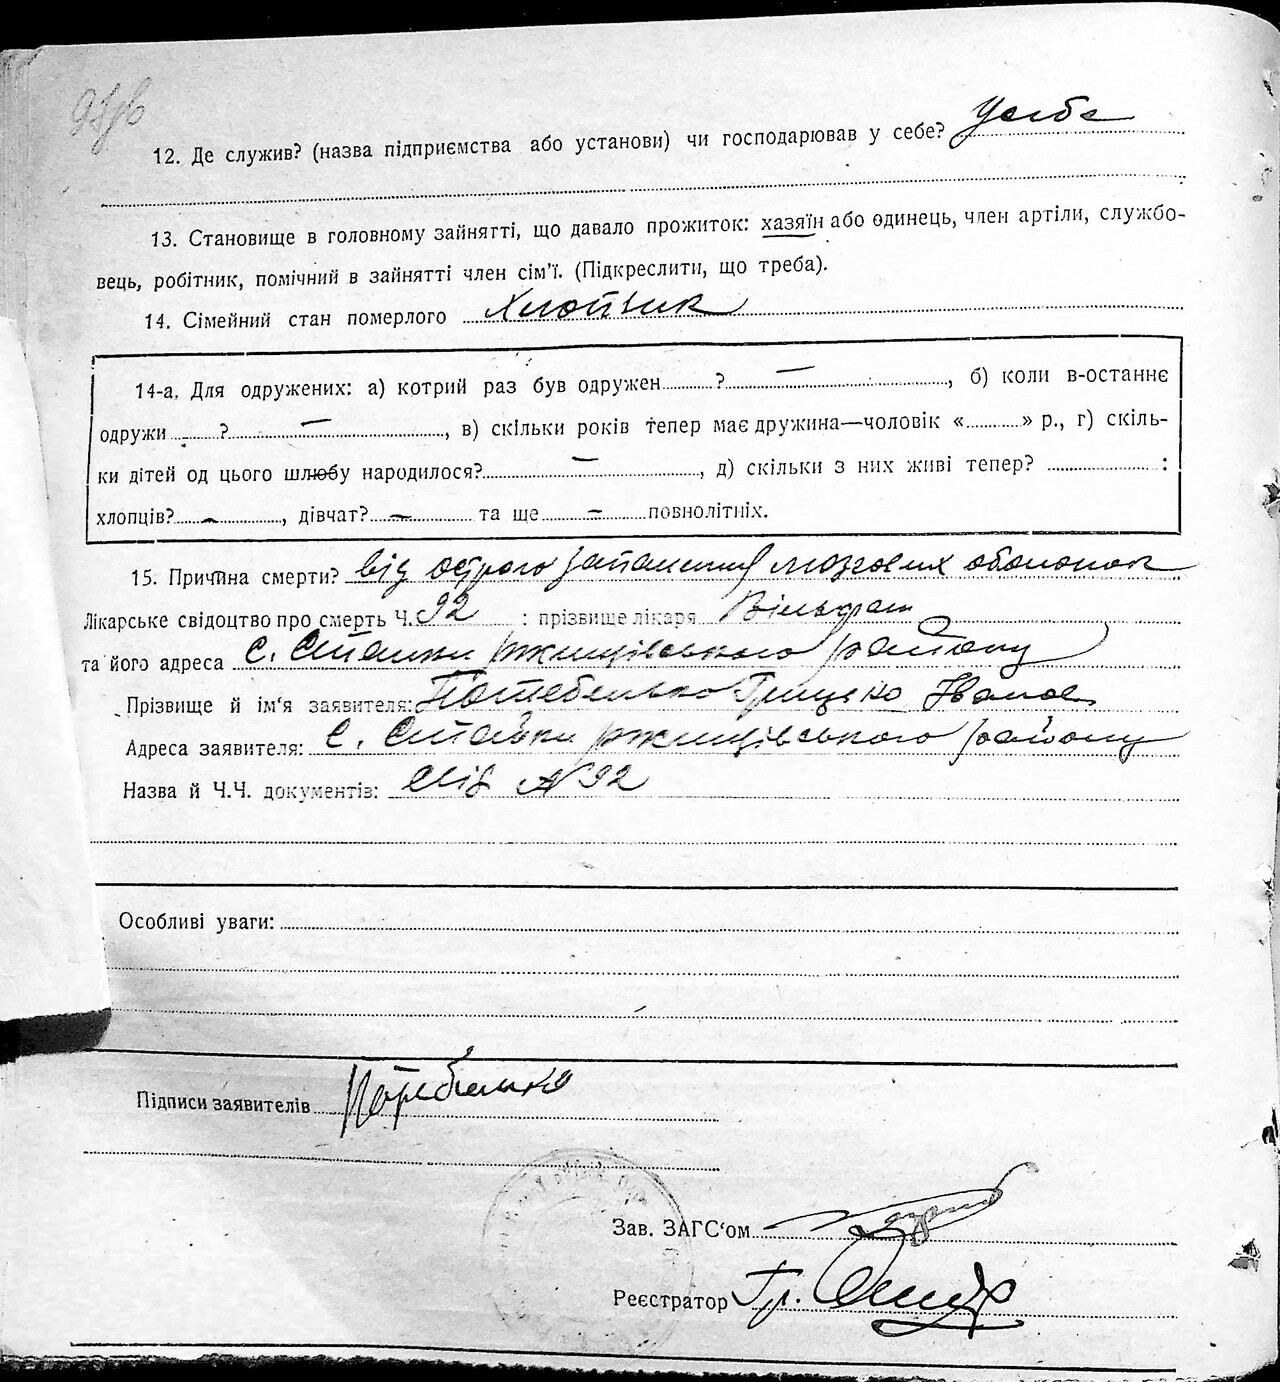 12. Де служив? (назва підприємства або установи) чи господарював у себе? У себе
13. Становище в головному зайнятті, що давало прожиток: хазяїн або одинець, член артіли, службо-
вець, робітник, помічний в зайнятті член сім'ї. (Підкреслити, що треба).
14. Сімейний стан померлого Хлопчик
14-а. Для одружених: а) котрий раз був одружен..........? —, б) коли в-останнє
одружи..........? —, в) скільки років тепер має дружина—чоловік «..........» р., г) скіль-
ки дітей од цього шлюбу народилося? —, д) скільки з них живі тепер? :
хлопців? —, дівчат? — та ще — повнолітніх.
15. Причина смерти? від острого запалення мозгових оболонок
Лікарське свідоцтво про смерть Ч. 92 : прізвище лікаря
та його адреса с. Стайки ржищівського району
Прізвище й ім'я заявителя: Потебенько Грицько Іванов
Адреса заявителя: с. Стайки ржищівського району
Назва й Ч.Ч. документів: N 92
Особливі уваги:
Підписи заявителів Потебенько
Зав. ЗАГС'ом
Реєстратор Гр.